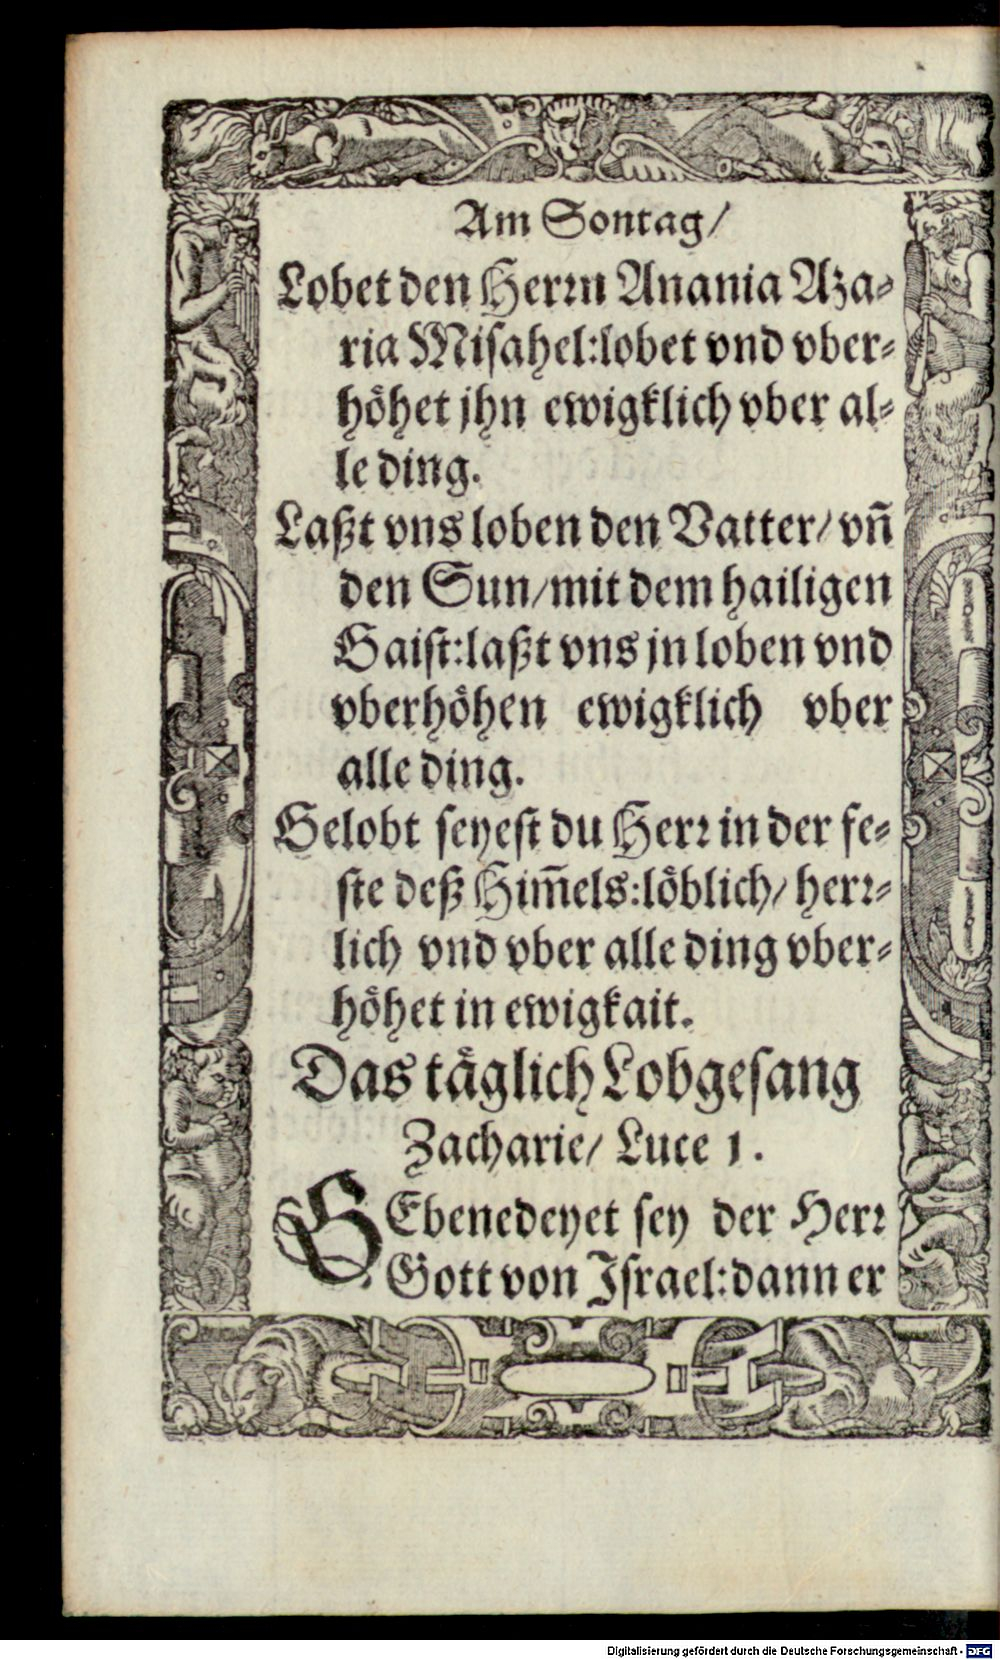 Am Sontag/
Lobet den Herꝛn Anania Aza⸗
ria Misahel:lobet vnd vber⸗
höhet jhn ewigklich vber al⸗
le ding.
Laßt vns loben den Vatter/ vn̄
den Sun/mit dem hailigen
Gaist:laßt vns jn loben vnd
vberhöhen ewigklich vber
alle ding.
Gelobt seyest du Herꝛ in der fe⸗
ste deß Him̄els:löblich/ herꝛ⸗
lich vnd vber alle ding vber⸗
höhet in ewigkait.
Das täglich Lobgesang
Zacharie/ Luce 1.
GEbenedeyet sey der Herꝛ
Gott von Israel:dann er
Digitalisierung gefördert durch die Deutsche Forschungsgemeinschaft - DFG